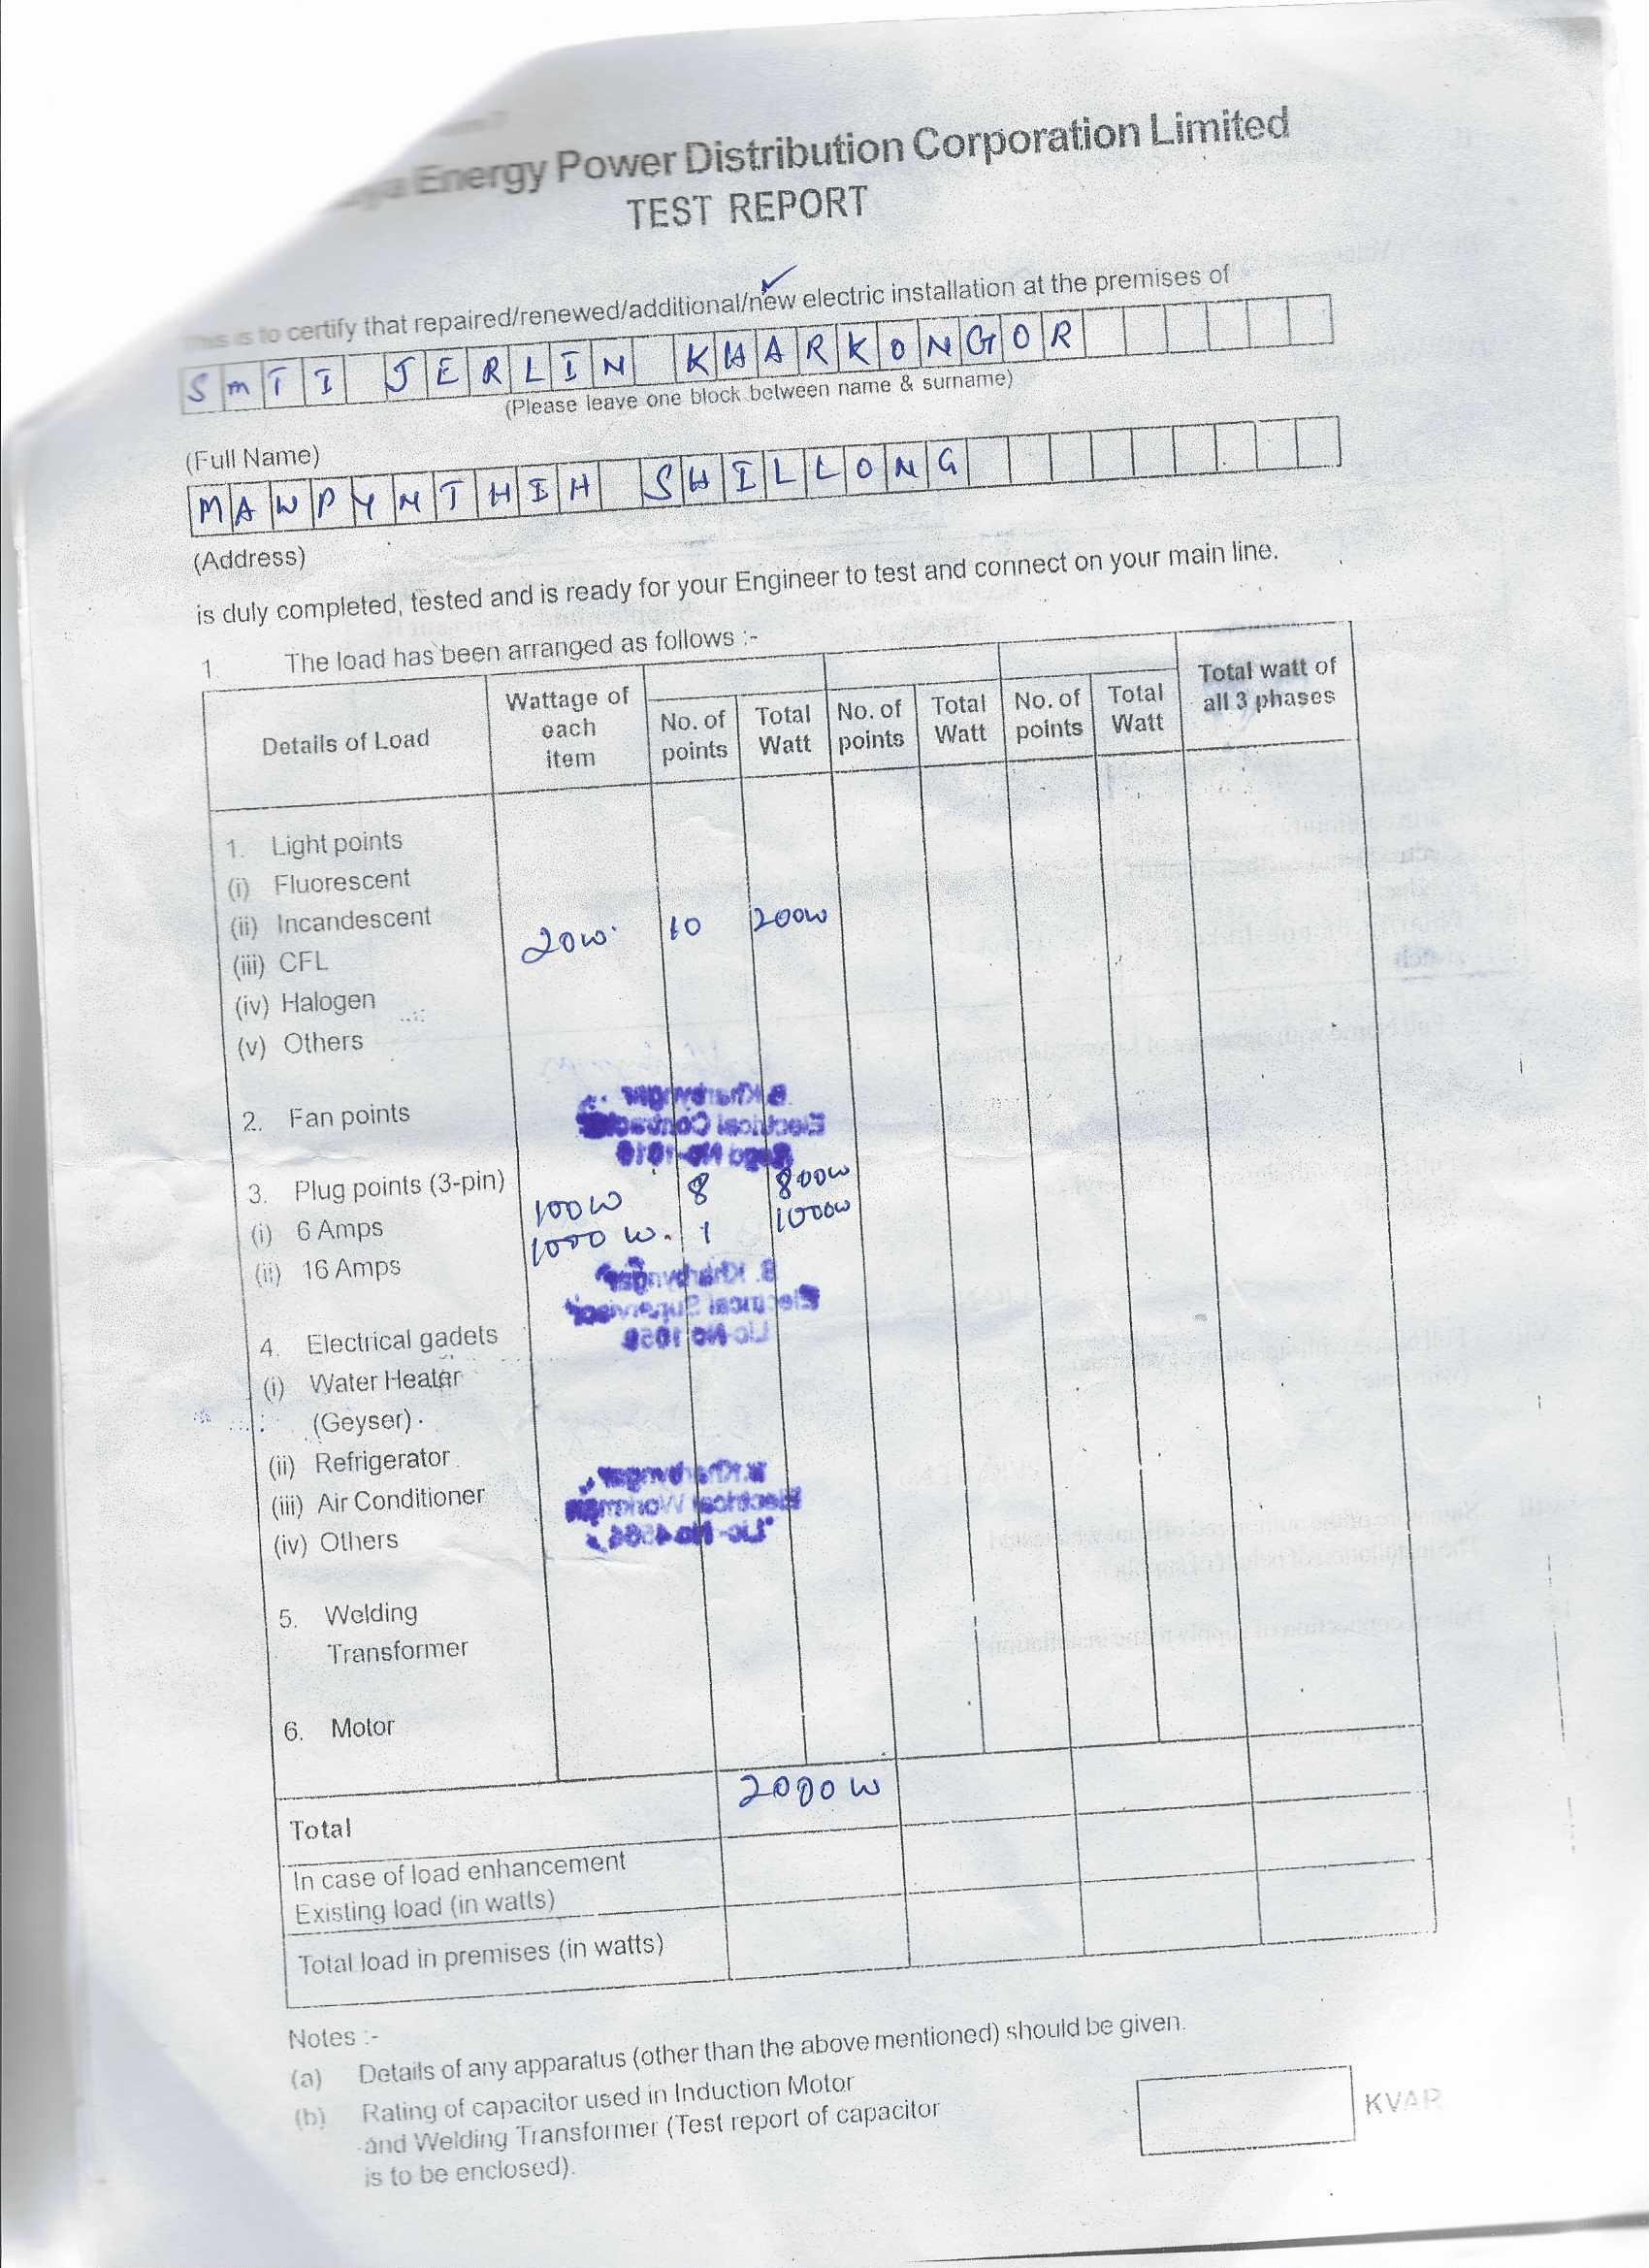 Energy Power Distribution Corporation Limited
TEST REPORT
This is to certify that repaired/renewed/additional/new electric installation at the premises of
SmTI JERLIN KHARKONGOR
(Please leave one block between name & surname)
(Full Name)
MAWPYNTHIH SHILLONG
(Address)
is duly completed, tested and is ready for your Engineer to test and connect on your main line.
1 The load has been arranged as follows :-
Details of Load Wattage of each item No. of points Total Watt No. of points Total Watt No. of points Total Watt Total watt of all 3 phases
1. Light points
(i) Fluorescent
(ii) Incandescent
(iii) CFL 20w. 10 200w
(iv) Halogen
(v) Others
2. Fan points
B. Kharbyngar
Electrical Contractor
Regd No-1016
3. Plug points (3-pin)
(i) 6 Amps 100W 8 800w
(ii) 16 Amps 1000 W. 1 1000w
B. Kharbyngar
Electrical Supervisor
Lic-No 1059
4. Electrical gadets
(i) Water Heater
(Geyser)
(ii) Refrigerator
(iii) Air Conditioner
(iv) Others
Kharbyngar
Electrical Workman
Lic-No
5. Welding
Transformer
6. Motor
Total 2000 W
In case of load enhancement
Existing load (in watts)
Total load in premises (in watts)
Notes :-
(a) Details of any apparatus (other than the above mentioned) should be given.
(b) Rating of capacitor used in Induction Motor
and Welding Transformer (Test report of capacitor
is to be enclosed).
KVAR